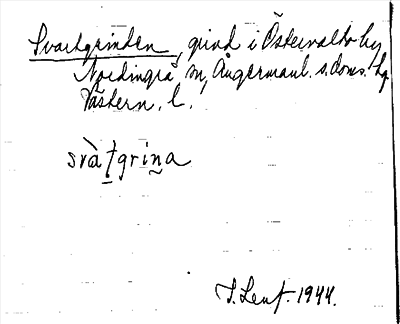 Svartgrinden, grind i Östervalto by
Nordingrå sn, Ångermanl. s. doms. hg
Västern. l.
svàṯgrin̰a
1944.